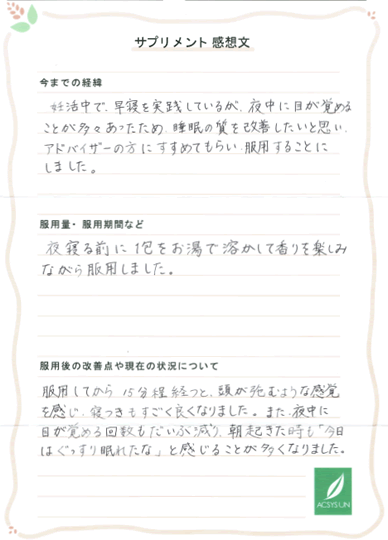 サプリメント 感想文
今までの経緯
妊活中で、早寝を実践しているが、夜中に目が覚める
ことが多々あったため、睡眠の質を改善したいと思い、
アドバイザーの方にすすめてもらい、服用することに
しました。
服用量・服用期間など
夜寝る前に1包をお湯で溶かして香りを楽しみ
ながら服用しました。
服用後の改善点や現在の状況について
服用してから 15分程経つと、頭が弛むような感覚
を感じ、寝つきもすごく良くなりました。また、夜中に
目が覚める回数もだいぶ減り、朝起きた時も「今日
はぐっすり眠れたな」と感じることが多くなりました。
ACSYSUN